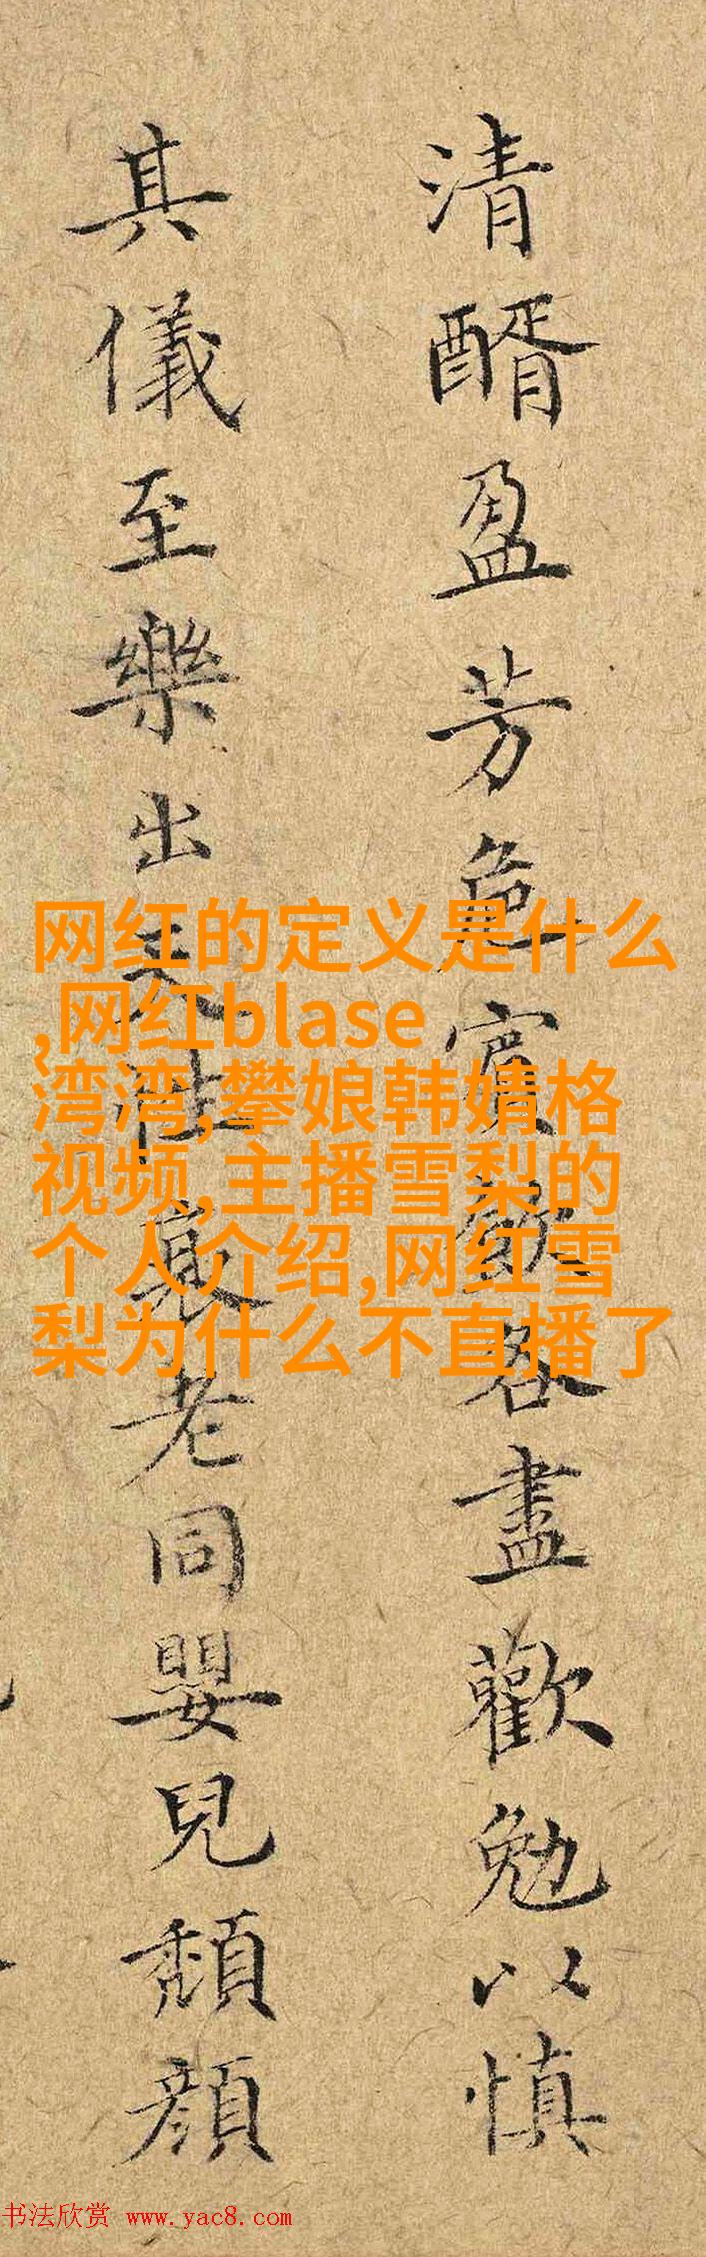 清醑盈芳巵賓各盡歡勉以慎
其儀至樂出天性衰老同嬰兒頹顏
网红的定义是什么
,网红blase
湾湾,攀娘韩婧格
视频,主播雪梨的
个人介绍,网红雪
梨为什么不直播了
书法欣赏 www.yac8.com